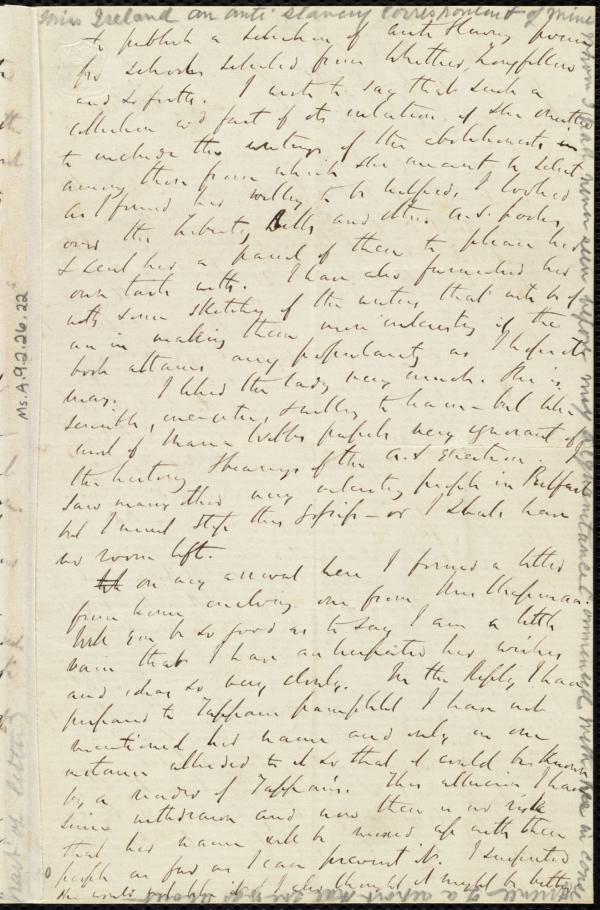 Miss Ireland an anti slavery correspondent of mine
to publish a selection of anti slavery poems
for schools selected from Whittier, Longfellow
and so forth. I wrote to say that such a
collection wd fail of its intention if she omitted
to include the writings of the abolitionists in
among those from which she meant to select
As I found her willing to be helped, I looked
over the Liberty Bells and other a.s. books
& sent her a parcel of them to please her
own taste with. I have also furnished her
with some sketches of the writers that will be of
use in making them more interesting if the
book attains any popularity as I hope it
may. I liked the lady very much. She is
sensible, and willing to learn - but like
most of Maria Webb's people very ignorant of
the history & bearings of the a.s. question. I
saw many other very interesting people in Belfast
but I must stop this gossip - or I shall have
no room left.
On my arrival here I found a letter
from home enclosing one from Mrs Chapman.
Will you be so good as to say I am a little
vain that I have anticipated her wishes
and ideas so very closely. In the Reply I have
prepared to Tappan's pamphlet I have not
mentioned her name and only in one
instance alluded to it so that it could be known
by a reader of Tappan's. This allusion I have
since withdrawn and now there is no risk
that her name will be mixed up with them
people as far as I can prevent it. I suspected
she would not like it. I also thought it might be better
Ms. A.9.2.26.22